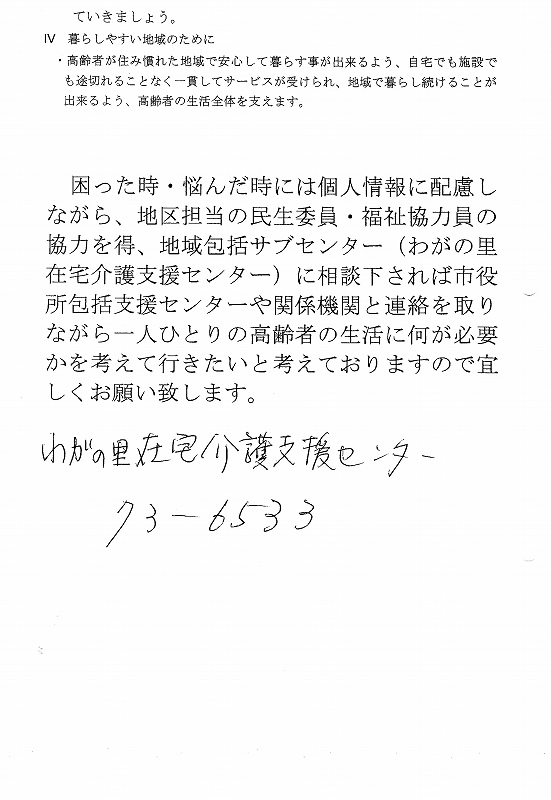 ていきましょう。
Ⅳ　暮らしやすい地域のために
・高齢者が住み慣れた地域で安心して暮らす事が出来るよう、自宅でも施設で
も途切れることなく一貫してサービスが受けられ、地域で暮らし続けることが
出来るよう、高齢者の生活全体を支えます。
困った時・悩んだ時には個人情報に配慮し
ながら、地区担当の民生委員・福祉協力員の
協力を得、地域包括サブセンター（わがの里
在宅介護支援センター）に相談下されば市役
所包括支援センターや関係機関と連絡を取り
ながら一人ひとりの高齢者の生活に何が必要
かを考えて行きたいと考えておりますので宜
しくお願い致します。
わがの里在宅介護支援センター
73－6533